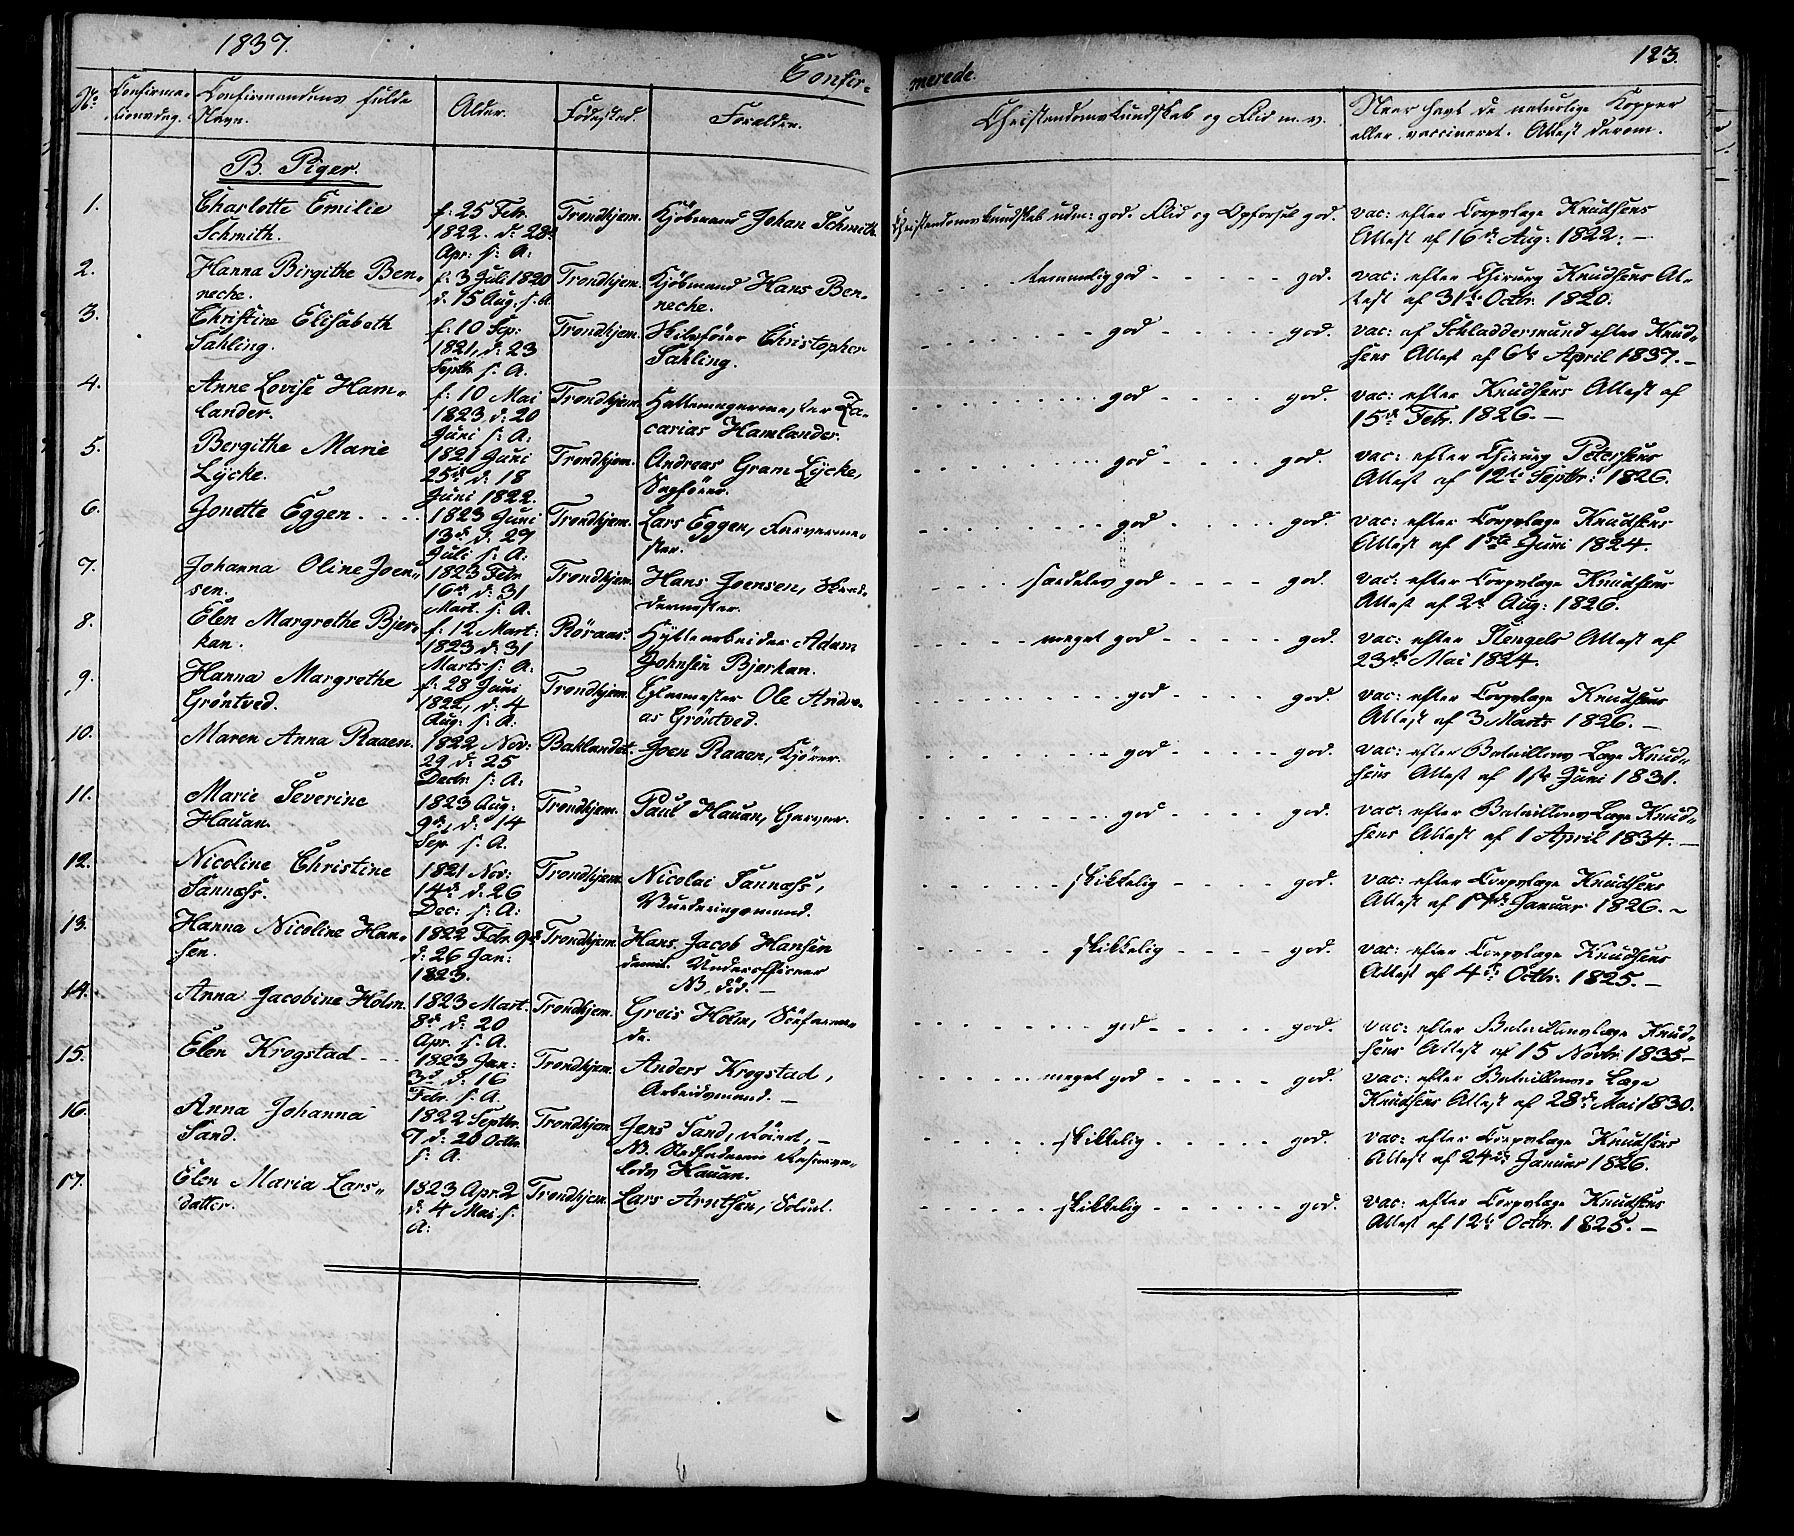 1837.
Confir-
merede.
123.
No.
Confirma-
tionsdag.
Confirmandens fulde
Navn.
Alder.
Födested.
Forældre.
Christendomskundskab og Flid m. v.
Naar havt de naturlige Kopper
eller vaccineret. Attest derom.
B. Piger.
1.
Charlotte Emilie
Schmith.
f: 25 Febr.
1822. d: 28de
Apr. s: A:
Trondhjem.
Kjöbmand Johan Schmith.
Christendomskundskab udm: god. Flid og Opförsel god.
vac: efter Corpslæge Knudsens
Attest af 16de Aug: 1822. —
2.
Hanna Birgithe Ben-
neche.
f: 3 Juli 1820
d. 15 Aug. s. A.
Trondhjem.
Kjöbmand Hans Ben-
neche.
temmelig god - - - - - god.
vac: efter Chirurg Knudsens At-
test af 31te Octr. 1820.
3.
Christine Elisabeth
Sahling.
f: 10 Sep:
1821, d: 23
Septr. s. A.
Trondhjem.
Christopher
Sahling.
god - - - - - god.
vac: af Schladdermund efter Knud-
sens Attest af 6te April 1837. —
4.
Anne Lovise Ham-
lander.
f: 10 Mai
1823, d: 20
Juni s: A:
Trondhjem.
Hattemagermester Za-
carias Hamlander.
god - - - - god.
vac: efter Knudsens Attest af
15de Febr. 1826. —
5.
Bergithe Marie
Lÿcke.
1821 Juni
25de d: 18
Juni 1822.
Trondhjem.
Andreas Gram Lÿcke,
Sagförer.
god - - - - god.
vac: efter Chirurg Petersens
Attest af 12te Septbr: 1826.
6.
Jonette Eggen - - - -
1823 Juni
13de d: 29
Juli s: A:
Trondhjem.
Lars Eggen, Farverme-
ster.
god - - - - - god.
vac: efter Corpslæge Knudsens
Attest af 1ste Juni 1824.
7.
Johanna Oline Joen-
sen.
1823 Febr
16de d: 31
Mart. s: A.
Trondhjem.
Hans Joensen, Skræd-
dermester.
særdeles god - - - - god.
vac: efter Corpslæge Knudsens
Attest af 2de Aug: 1826.
8.
Elen Margrethe Bjer-
kan.
f: 12 Mart:
1823 d: 31
Marts s: A:
Röraas.
Hyttearbeider Adam
Johnsen Bjerkan.
meget god - - - - - god.
vac: efter Stengels Attest af
23de Mai 1824.
9.
Hanna Margrethe
Gröntved.
f: 28 Juni
1822, d: 4
Aug: s: A:
Trondhjem.
Glarmester Ole Andre-
as Gröntved.
god - - - - - god.
vac: efter Corpslæge Knudsens
Attest af 3 Marts 1826. —
10.
Maren Anna Raaen.
1822 Nov:
29 d: 25
Decbr. s: A:
Baklandet.
Joen Raaen, Kjörer.
god - - - - - god.
vac: efter Bataillons Læge Knud-
sens Attest af 1ste Juni 1831.
11.
Marie Severine
Hauan.
1823 Aug:
9de, d: 14
Sep. s: A.
Trondhjem.
Paul Hauan, Garver.
god - - - - god.
vac: efter Bataillons Læge Knud-
sens Attest af 1 April 1834. —
12.
Nicoline Christine
Sannæss.
1821 Nov:
14de d: 26
Dec: s: A:
Trondhjem.
Nicolai Sannæss,
Vurderingsmand.
skikkelig - - - - god.
vac: efter Corpslæge Knudsens
Attest af 17de Januar 1826. —
13.
Hanna Nicoline Han-
sen.
1822 Febr. 9de
d: 26 Jan:
1823.
Trondhjem.
Hans Jacob Hansen
demit. Underofficeer
N, död. —
skikkelig - - - - god.
vac: efter Corpslæge Knudsens
Attest af 4de Octbr. 1825. —
14.
Anna Jacobine Holm.
1823 Mart.
8de d: 20
Apr. s: A.
Trondhjem.
Greis Holm, Söefaren-
de.
god - - - - - god.
vac: efter Bataillonslæge Knud-
sens Attest af 15 Novbr: 1835 —
15.
Elen Krogstad - - -
1823 Jan:
3de d: 16
Febr. s: A.
Trondhjem.
Anders Krogstad,
Arbeidsmand. —
meget god - - - - - god.
vac: efter Bataillons Læge
Knudsens Attest af 28de Mai 1830.
16.
Anna Johanna
Sand.
1822 Septbr.
7 d: 20 Octbr.
s: A.
Trondhjem.
Jens Sand,
Hauan.
skikkelig - - - - - god.
vac: efter Corpslæge Knudsens
Attest af 24de Januar 1826.
17.
Elen Maria Lars-
datter.
1823 Apr. 2
d: 4 Mai s:
A:
Trondhjem.
Lars Arntsen, Soldat.
skikkelig - - - - - - god.
vac: efter Corpslæge Knudsens
Attest af 12te Octbr. 1825. —